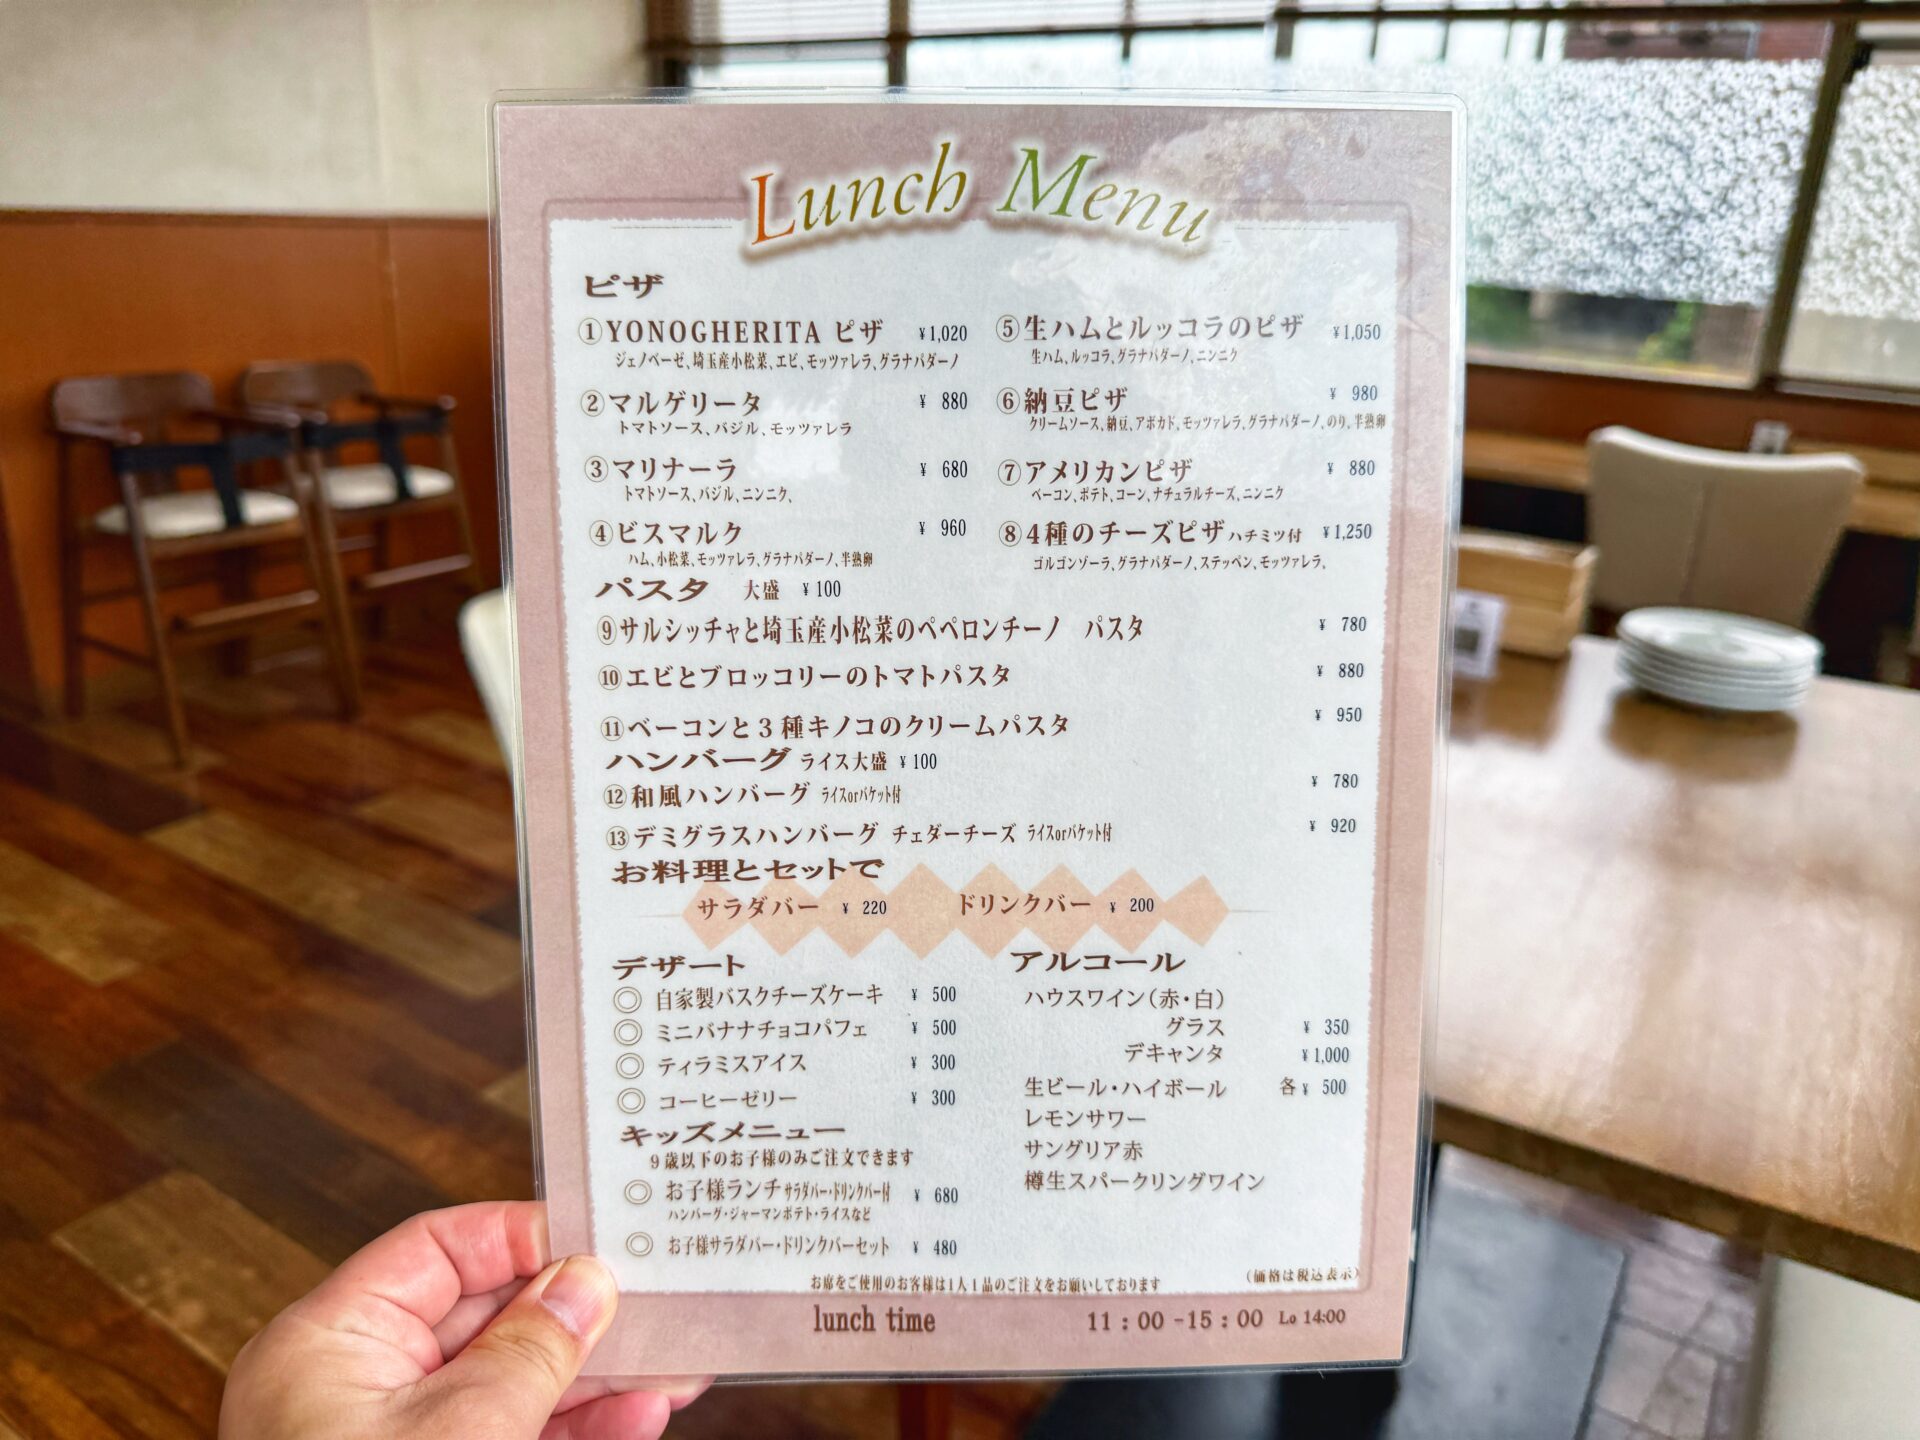 Lunch Menu
ピザ
①YONOGHERITA ピザ ¥1,020
ジェノベーゼ、埼玉産小松菜、エビ、モッツァレラ、グラナパダーノ
②マルゲリータ ¥ 880
トマトソース、バジル、モッツァレラ
③マリナーラ ¥ 680
トマトソース、バジル、ニンニク、
④ビスマルク ¥ 960
ハム、小松菜、モッツァレラ、グラナパダーノ、半熟卵
⑤生ハムとルッコラのピザ ¥1,050
生ハム、ルッコラ、グラナパダーノ、ニンニク
⑥納豆ピザ ¥ 980
クリームソース、納豆、アボカド、モッツァレラ、グラナパダーノ、のり、半熟卵
⑦アメリカンピザ ¥ 880
ベーコン、ポテト、コーン、ナチュラルチーズ、ニンニク
⑧4種のチーズピザ ハチミツ付 ¥1,250
ゴルゴンゾーラ、グラナパダーノ、ステッペン、モッツァレラ、
パスタ 大盛 ¥100
⑨サルシッチャと埼玉産小松菜のペペロンチーノ パスタ ¥ 780
⑩エビとブロッコリーのトマトパスタ ¥ 880
⑪ベーコンと3種キノコのクリームパスタ ¥ 950
ハンバーグ ライス大盛 ¥100
⑫和風ハンバーグ ライスorバケット付 ¥ 780
⑬デミグラスハンバーグ チェダーチーズ ライスorバケット付 ¥ 920
お料理とセットで
サラダバー ¥ 220 ドリンクバー ¥ 200
デザート
◎ 自家製バスクチーズケーキ ¥ 500
◎ ミニバナナチョコパフェ ¥ 500
◎ ティラミスアイス ¥ 300
◎ コーヒーゼリー ¥ 300
キッズメニュー
9歳以下のお子様のみご注文できます
◎ お子様ランチ サラダバー・ドリンクバー付 ¥ 680
ハンバーグ・ジャーマンポテト・ライスなど
◎ お子様サラダバー・ドリンクバーセット ¥ 480
アルコール
ハウスワイン(赤・白)
グラス ¥ 350
デキャンタ ¥1,000
生ビール・ハイボール 各¥ 500
レモンサワー
サングリア赤
樽生スパークリングワイン
お席をご使用のお客様は1人1品のご注文をお願いしております
(価格は税込表示)
lunch time 11:00-15:00 Lo 14:00